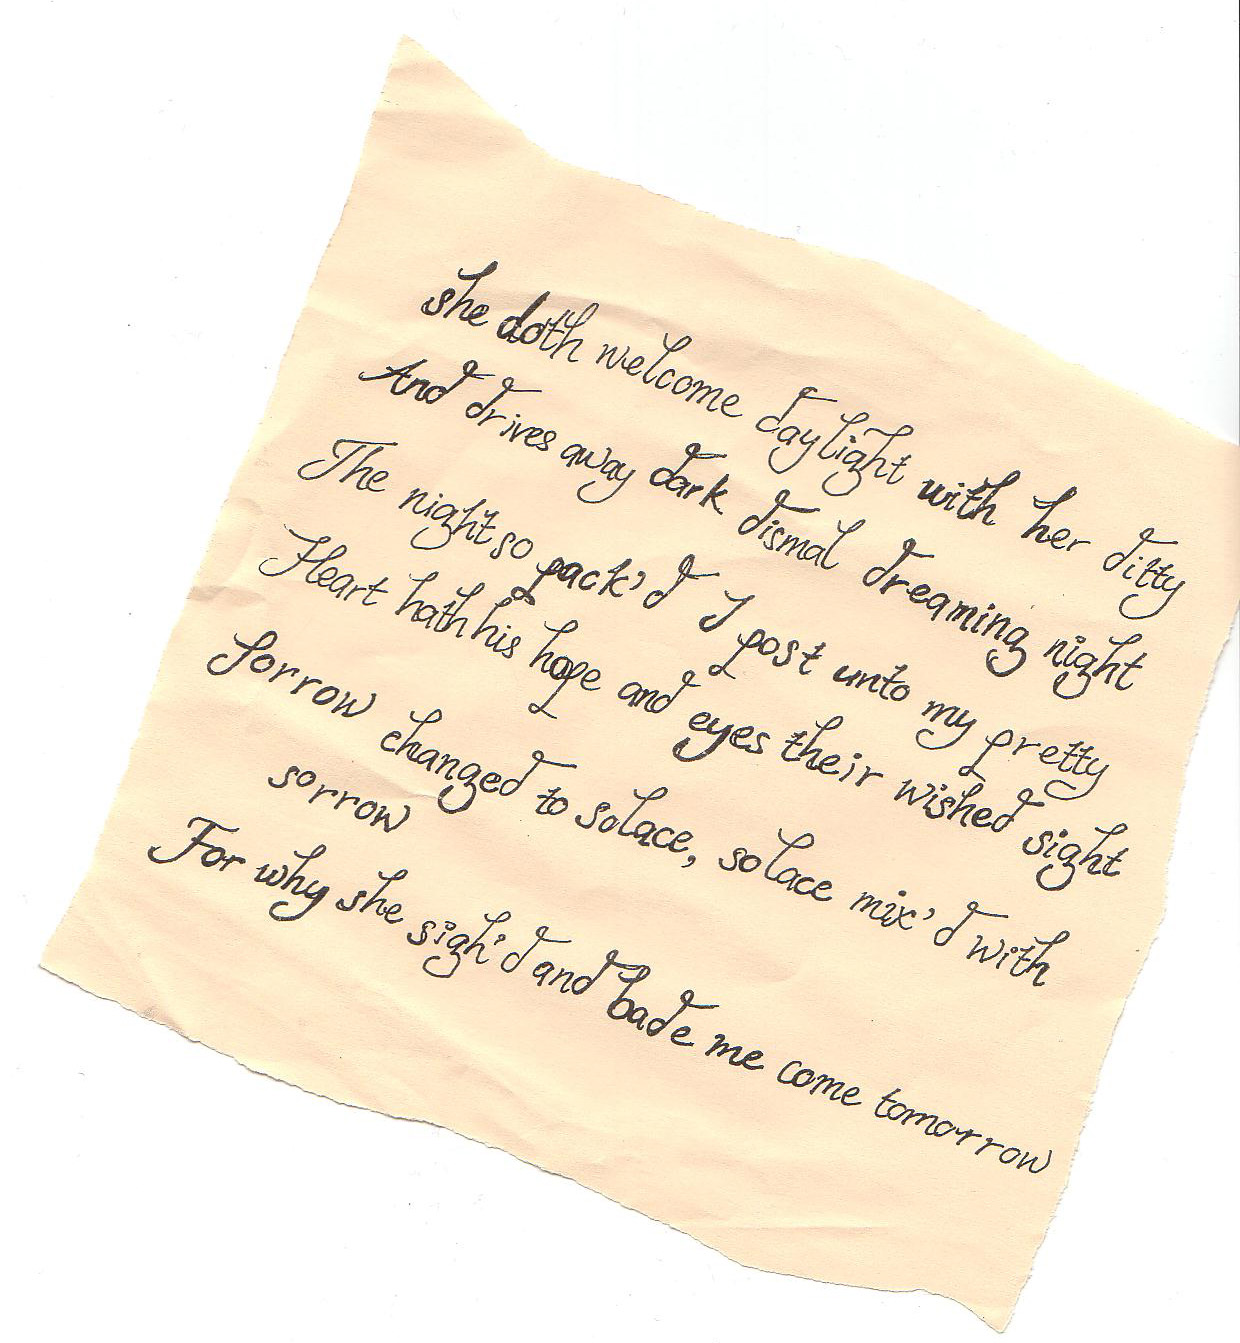 she doth welcome daylight with her ditty
And drives away dark dismal dreaming night
The night so pack'd I post unto my pretty
Heart hath his hope and eyes their wished sight
Sorrow changed to solace, solace mix'd with
sorrow
For why she sigh'd and bade me come tomorrow